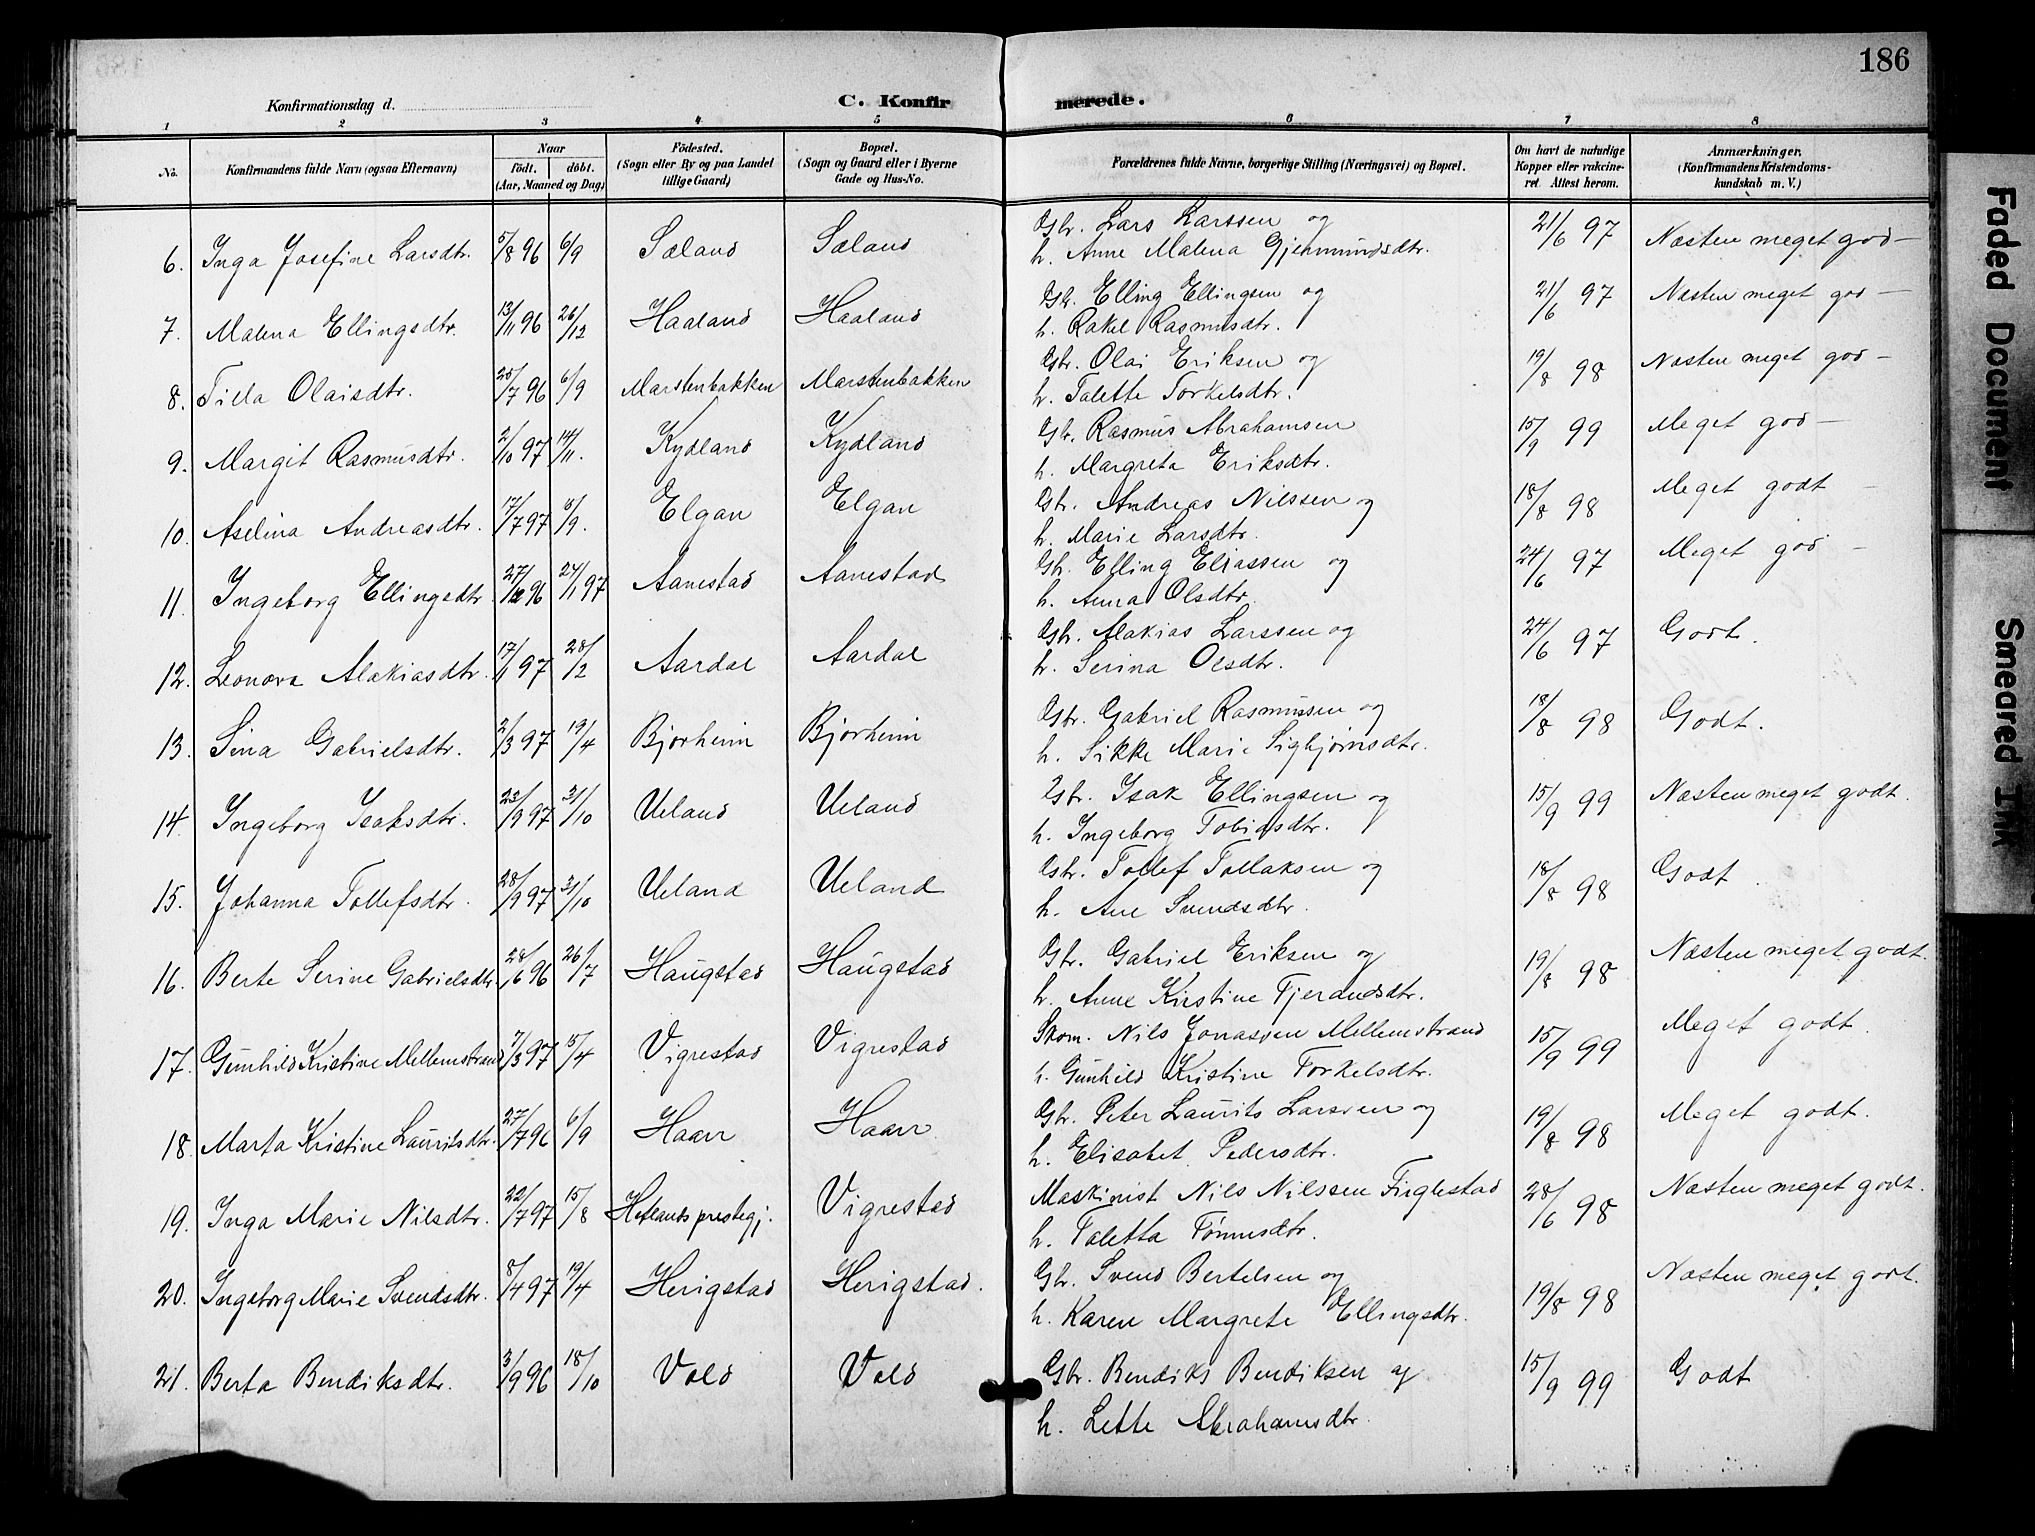 186
Konfirmationsdag d.
C. Konfirmerede.
1 2 3 4 5 6 7 8
No. Konfirmandens fulde Navn (ogsaa Efternavn) Naar født. døbt. (Aar, Maaned og Dag) Fødested. (Sogn eller By og paa Landet tillige Gaard) Bopæl. (Sogn og Gaard eller i Byerne Gade og Hus-No. Forældrenes fulde Navne, borgerlige Stilling (Næringsvei) og Bopæl. Om havt de naturlige Kopper eller vakcineret. Attest herom. Anmærkninger. (Konfirmandens Kristendomskundskab m. V.)
6. Inga Josefine Larsdtr. 5/8 96 6/9 Sæland Sæland Gbr. Lars Larssen og 21/6 97 Næsten meget god —
h. Anne Malena Gjermundsdtr.
7. Malena Ellingsdtr. 13/11 96 26/12 Haaland Haaland Gbr. Elling Ellingsen og 21/6 97 Næsten meget god —
h. Rakel Rasmusdtr.
8. Tilla Olaisdtr. 20/7 96 6/9 Marstenbakken Marstenbakken Gbr. Olai Eriksen og 19/8 98 Næsten meget god —
h. Talette Torkelsdtr.
9. Margit Rasmusdtr. 2/10 97 14/11. Kydland Kydland Gbr. Rasmus Abrahamsen 15/9 99 Meget god —
h. Margreta Eriksdtr.
10. Aselina Andreasdtr. 17/7 97 /9. Elgan Elgan Gbr. Andreas Nilssen og 18/8 98 Meget godt —
h. Marie Larsdtr.
11. Ingeborg Ellingsdtr. 27/12 96 24/1 97 Aanestad Aanestad Gbr. Elling Eliassen og 24/6 97 Meget god —
h. Anna Olsdtr.
12. Leonora Alakiasdtr. 17/1 97 28/2 Aardal Aardal Gbr. Alakias Larssen og 24/6 97 Godt.
h. Serina Olsdtr.
13. Sina Gabrielsdtr. 2/3 97 19/4 Bjorheim Bjorheim Gbr. Gabriel Rasmussen og 18/8 98 Godt.
h. Sikke Marie Sigbjørnsdtr.
14. Ingeborg Isaksdtr. 23/9 97 31/10 Ueland Ueland Gbr. Isak Ellingsen og 15/9 99 Næsten meget godt.
h. Ingeborg Tobiasdtr.
15. Johanna Tollefsdtr. 28/9 97 31/10 Ueland Ueland Gbr. Tollef Tollaksen og 18/8 98 Godt.
h. Ane Svendsdtr.
16. Berte Serine Gabrielsdtr. 28/6 96 26/7 Haugstad Haugstad Gbr. Gabriel Eriksen og 19/8 98 Næsten meget godt.
h. Anne Kirstine Tjerandsdtr.
17. Gunhild Kristine Mellemstrand 7/3 97 15/4 Vigrestad Vigrestad Skom. Nils Jonassen Mellemstrand 15/9 99 Meget godt.
h. Gunhild Kristine Torkelsdtr.
18. Marta Kristine Lauritsdtr. 27/7 96 6/9 Haarr Haarr. Gbr. Peter Laurits Larssen og 19/8 98 Meget godt.
h. Elisabet Pedersdtr.
19. Inga Marie Nilsdtr. 22/7 97 15/8 Hetlands prestegj. Vigrestad Maskinist Nils Nilssen Tinglestad 28/6 98 Næsten meget godt.
h. Taletta Tønnesdtr.
20. Ingeborg Marie Svendsdtr. 8/4 97 19/4 Herigstad Herigstad. Gbr. Svend Bertelsen og 19/8 98 Næsten meget godt.
h. Karen Margrete Ellingsdtr.
21. Berta Bendiksdtr. 3/9 96 18/10 Vold Vold Gbr. Bendiks Bendiksen og 15/9 99 Godt
h. Lette Abrahamsdtr.
Faded Document
Smeared Ink